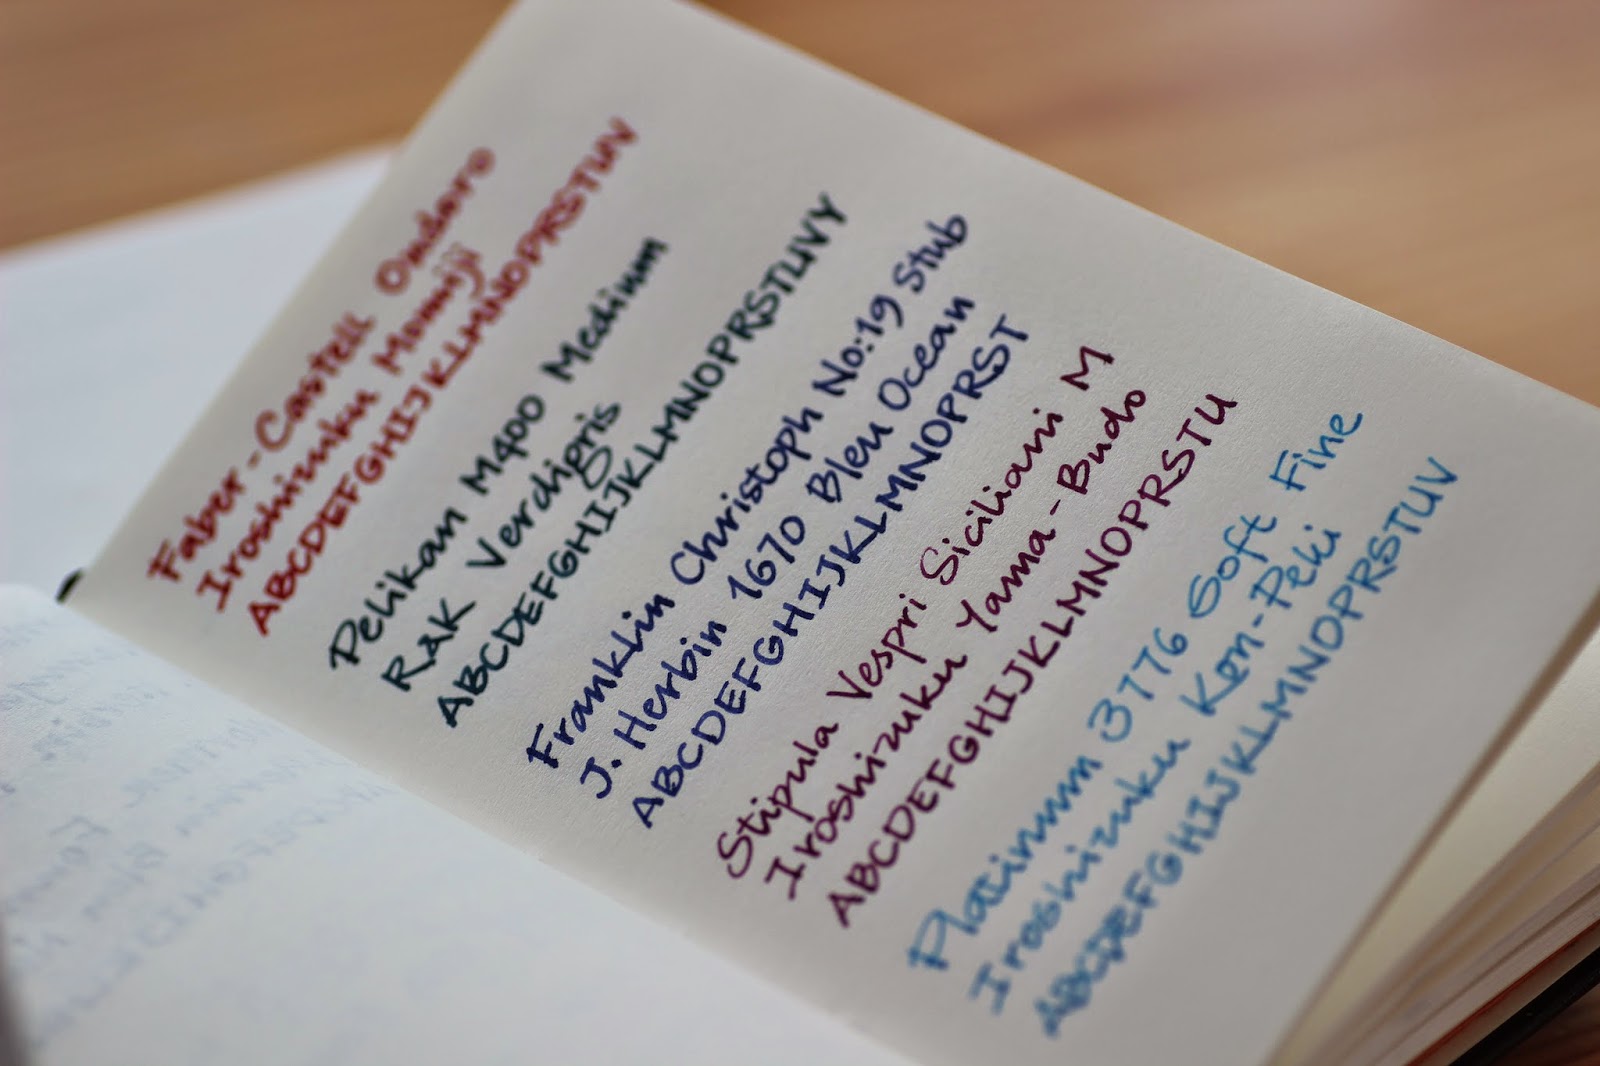 Faber-Castell Ondoro
Iroshizuku Momiji
ABCDEFGHIJKLMNOPRSTUV
Pelikan M400 Medium
R&K Verdigris
ABCDEFGHIJKLMNOPRSTUVY
Franklin Christoph No:19 Stub
J. Herbin 1670 Bleu Ocean
ABCDEFGHIJKLMNOPRST
Stipula Vespri Siciliani M
Iroshizuku Yama-Budo
ABCDEFGHIJKLMNOPRSTU
Platinum 3776 Soft Fine
Iroshizuku Kon-Peki
ABCDEFGHIJKLMNOPRSTUV